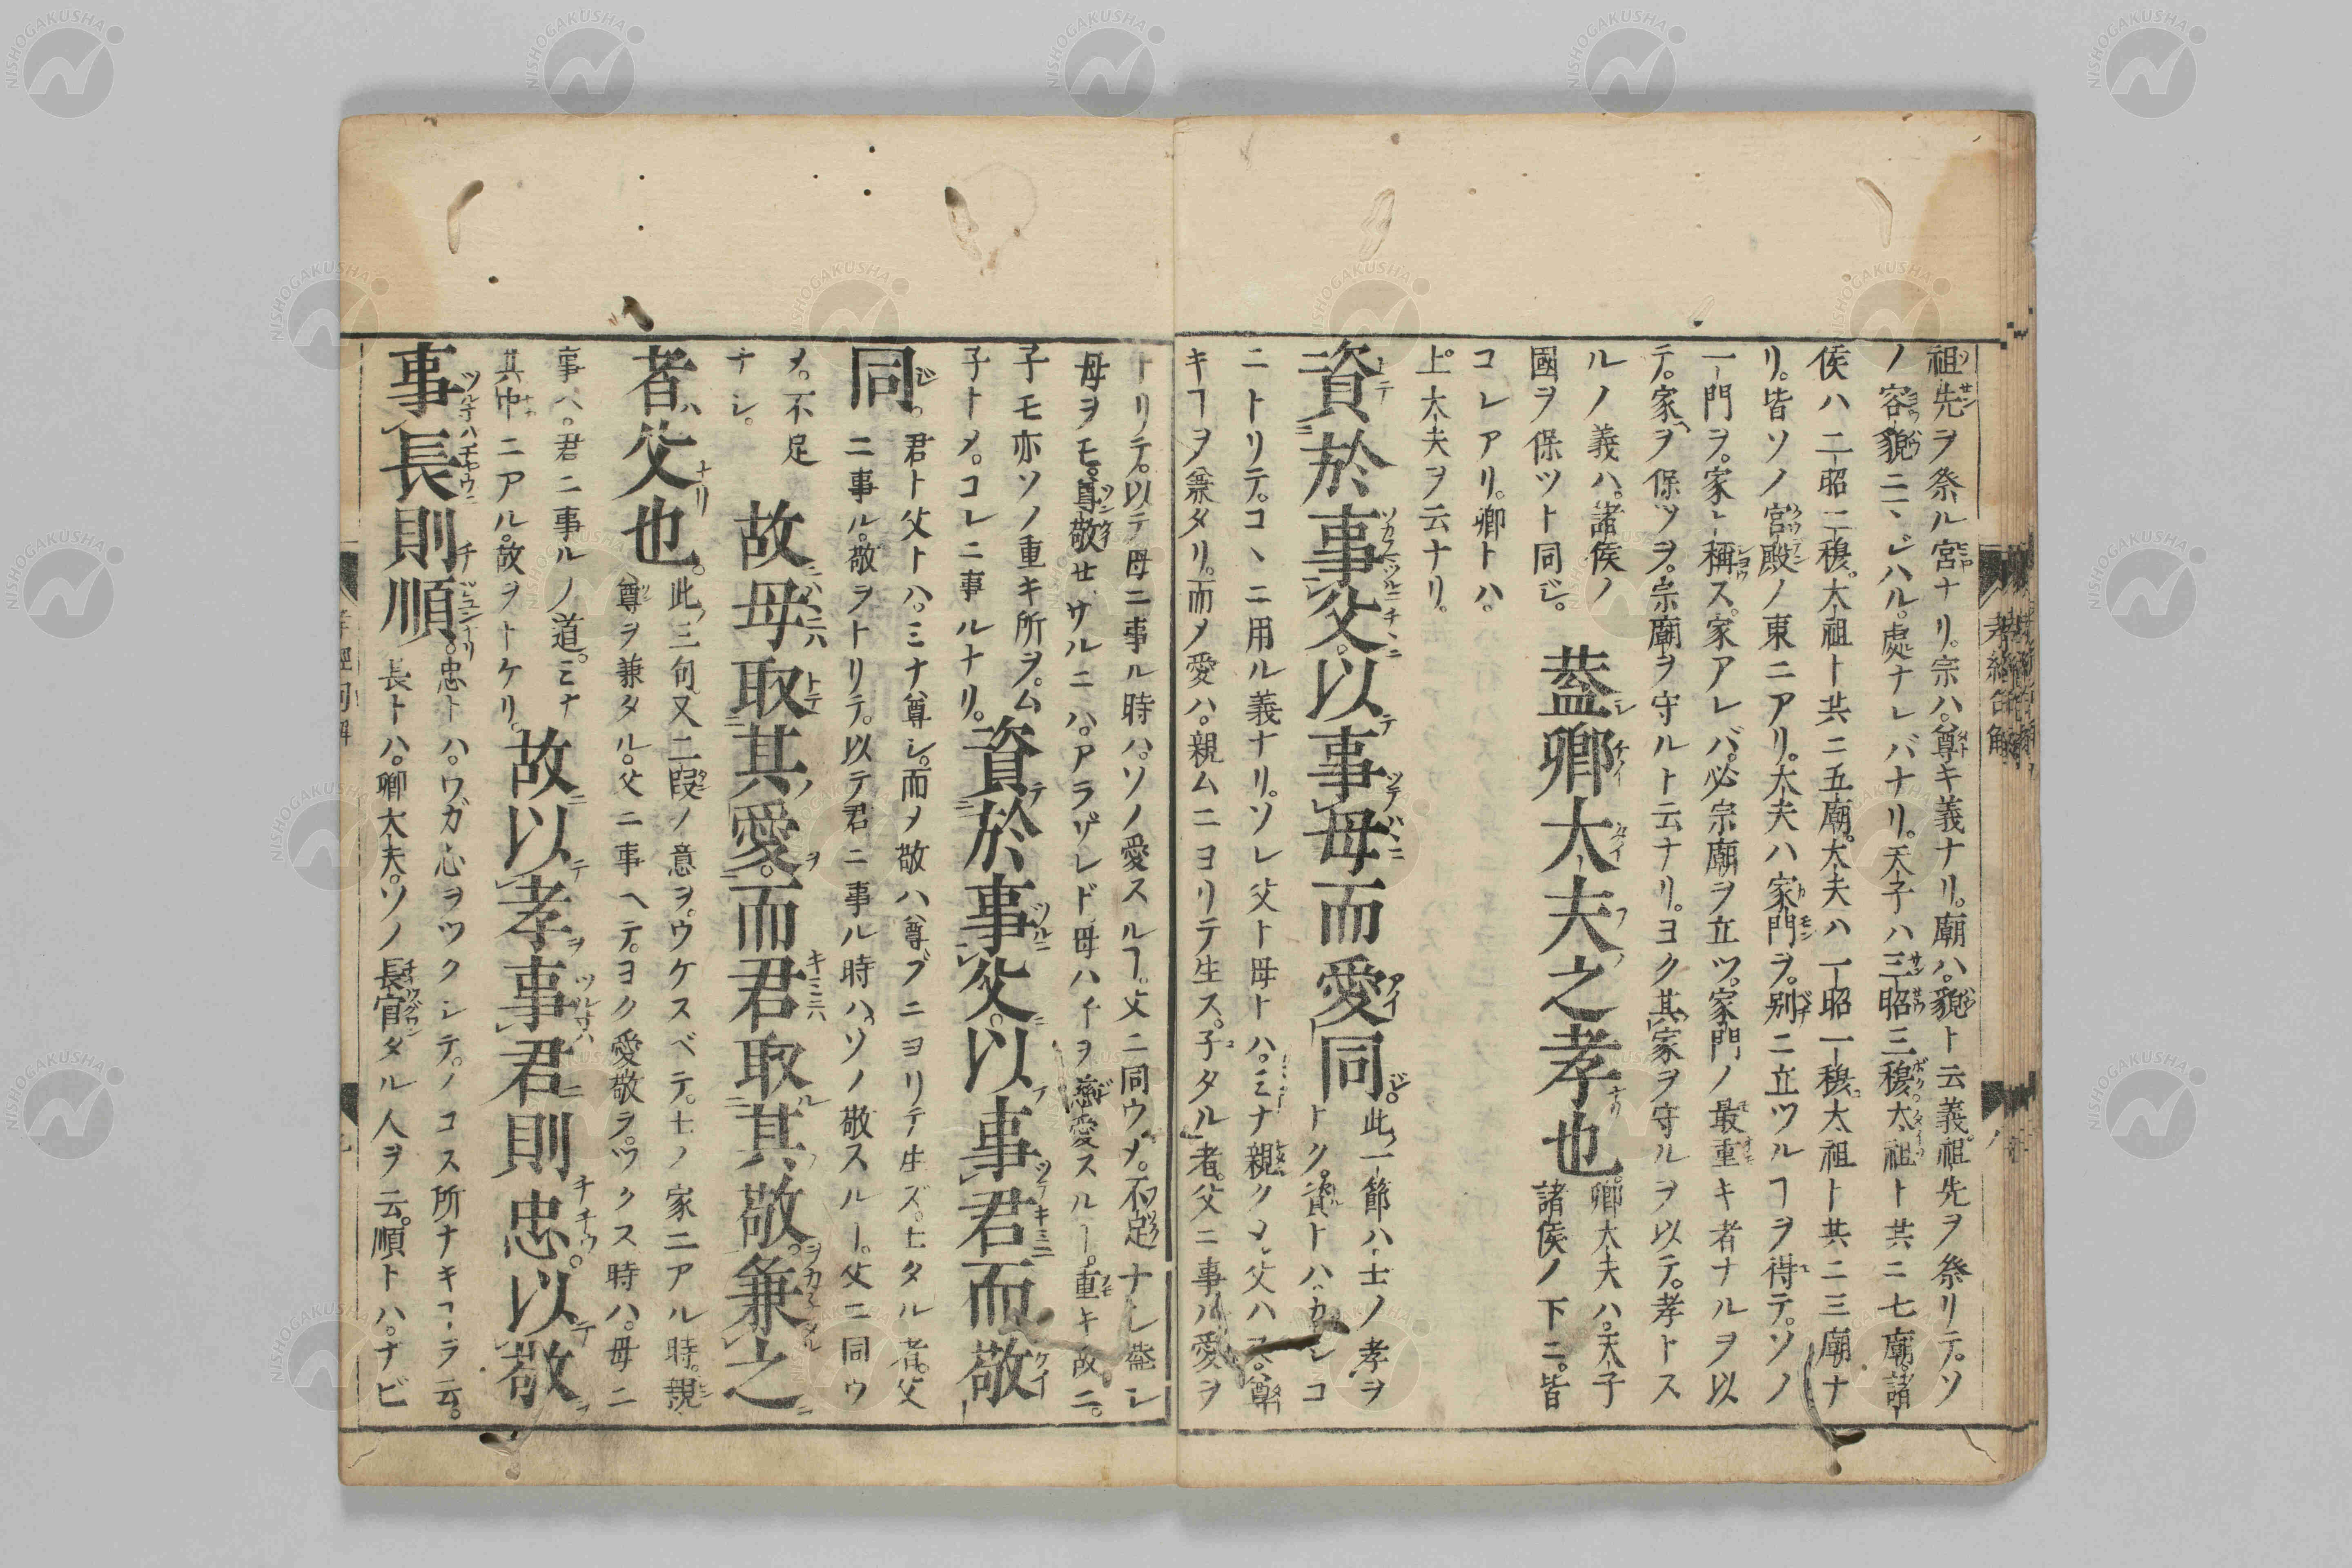 祖先ヲ祭ル宮ナリ。宗ハ。尊キ義ナリ。廟ハ。貌ト云義。祖先ヲ祭リテ。ソ
ノ容貌ニ、ビハル。處ナレバナリ。天子ハ三昭三穆。太祖ト共ニ七廟。諸
侯ハ二昭二穆。太祖ト共ニ五廟。大夫ハ一昭一穆太祖ト共ニ三廟ナ
リ。皆ソノ宮殿ノ東ニアリ。大夫ハ家門ヲ。別ニ立ツルヿヲ得テ。ソノ
一門ヲ。家ト稱ス。家アレバ。必宗廟ヲ立ツ。家門ノ最重キ者ナルヲ以
テ。家ヲ保ツヲ。宗廟ヲ守ルト云ナリ。ヨク其家ヲ守ルヲ以テ。孝トス
ルノ義ハ。諸侯ノ
國ヲ保ツト同ジ。
蓋卿大夫之孝也
卿大夫ハ。天子
諸侯ノ下ニ。皆
コレアリ。卿トハ。
上大夫ヲ云ナリ。
資於事父。以事母而愛同。
此一節ハ士ノ孝ヲ
トク。資トハ。カシコ
ニトリテ。コヽニ用ル義ナリ。ソレ父ト母トハ。ミナ親クメ。父ハ又。尊
キヿヲ兼タリ。而メ愛ハ。親ムニヨリテ生ス。子タル者。父ニ事ル愛ヲ
トリテ。以テ母ニ事ル時ハ。ソノ愛スルヿ。父ニ同ウメ。不足ナシ。蓋シ
母ヲモ。尊敬セザルニハ。アラザレドモ母ハ子ヲ慈愛スルヿ。重キ故ニ。
子モ亦ソノ重キ所ヲ。ム
子トメ。コレニ事ルナリ。
資於事父。以事君而敬
同。
君ト父トハ。ミナ尊シ。而メ敬ハ尊ブニヨリテ生ズ。士タル者。父
ニ事ル。敬ヲトリテ。以テ君ニ事ル時ハ。ソノ敬スルヿ。父ニ同ウ
メ。不足
ナシ。
故母取其愛。而君取其敬。兼之
者父也。
此三句又二段ノ意ヲ。ウケスベテ。士ノ家ニアル時。親
尊ヲ兼タル。父ニ事ヘテ。ヨク愛敬ヲ。ツクス時ハ。母ニ
事ヘ。君ニ事ルノ道。ミナ
其中ニアル。故ヲトケリ。
故以孝事君則忠。以敬
事長則順。
忠トハ。ワガ心ヲツクシテ。ノコス所ナキヿヲ云。
長トハ。卿大夫。ソノ長官タル人ヲ云。順トハ。ナビ
NISHOGAKUSHA